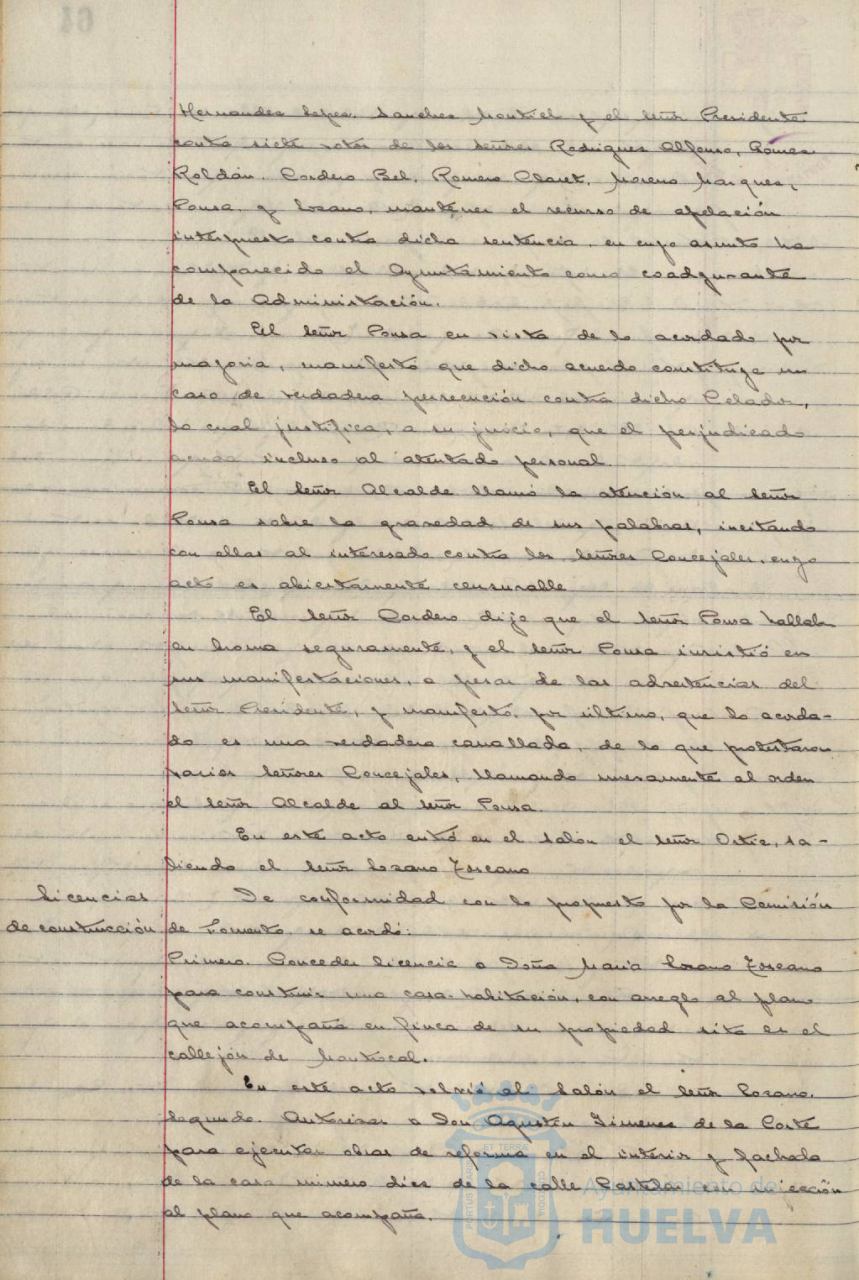 Hernandez Lopez, Sanchez Montiel y el Señor Presidente
contra siete votos de los señores Rodriguez Alfonso, Gómez
Roldán, Cordero Bel, Romero Claret, Moreno Marquez,
Ponsa, y Lozano, mantener el recurso de apelación
interpuesto contra dicha sentencia, en cuyo asunto ha
comparecido el Ayuntamiento como coadyuvante
de la Administación.
El Señor Ponsa en vista de lo acordado por
mayoria, manifestó que dicho acuerdo constituye un
caso de verdadera persecución contra dicho Celador,
lo cual justifica, a su juicio, que el perjudicado
acuda incluso al atentado personal.
El Señor Alcalde llamó la atención al Señor
Ponsa sobre la gravedad de sus palabras, incitando
con ellas al interesado contra los Señores Concejales, cuyo
acto es abiertamente censurable
El Señor Cordero dijo que el Señor Ponsa hallab
en broma seguramente, y el Señor Ponsa insistió en
sus manifestaciones, a pesar de las advertencias del
Señor Presidente, y manifestó, por último, que lo acorda-
do es una verdadera canallada, de lo que protestaron
varios Señores Concejales, llamando nuevamente al orden
el Señor Alcalde al Señor Ponsa.
En este acto entró en el salón el Señor Ortiz, sa-
liendo el Señor Lozano Toscano
Licencias
de construcción
De conformidad con lo propuesto por la Comisión
de Fomento, se acordó:
Primero. Conceder licencia a Doña Maria Lozano Toscano
para construir una casa-habitación, con arreglo al plano
que acompaña en finca de su propiedad sita en el
callejón de Montrocal.
En este acto volvió al Salón el Señor Lozano.
Segundo. Autorizar a Don Agustín Jimenez de la Corte
para ejecutar obras de reforma en el interior y fachada
de la casa número diez de la calle Castelar con sujección
al plano que acompaña.
Ayuntamiento de
HUELVA